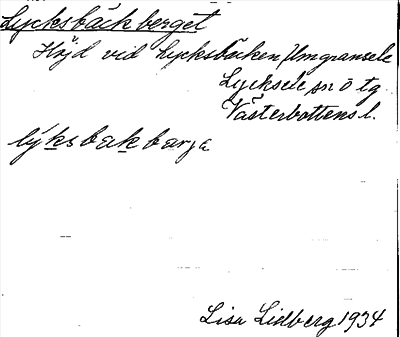 Lycksbäckberget
Höjd vid Lycksbäcken, Umgransele
Lycksele sn o tg
Västerbottens l.
lýksbakbarja
Lisa Lidberg 1934